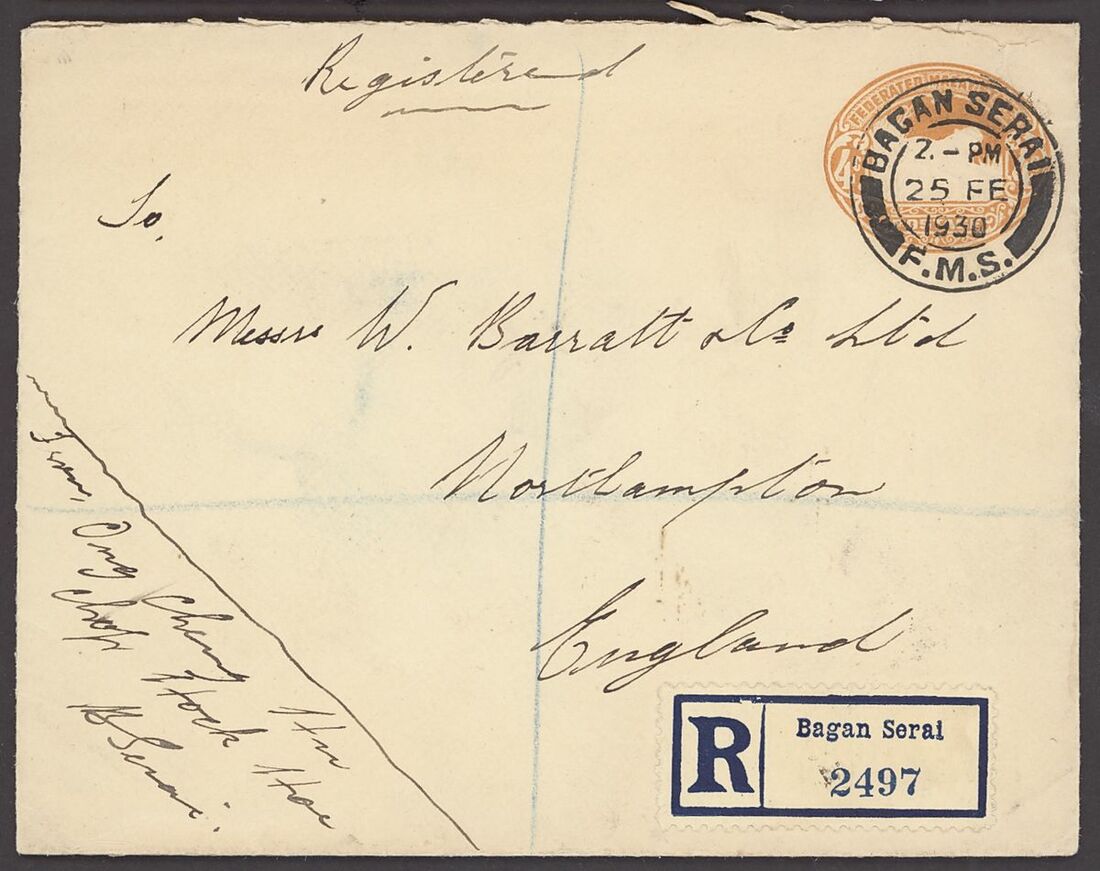 Registered
FEDERATED MALA
BAGAN SERAI
2.-PM
25 FE
1930
F.M.S.
To,
Messrs W. Barratt & Co Ltd
Northampton
England
From, Ong Cheng Hu
Chop Hock Hoe
B Serai.
R
Bagan Serai
2497